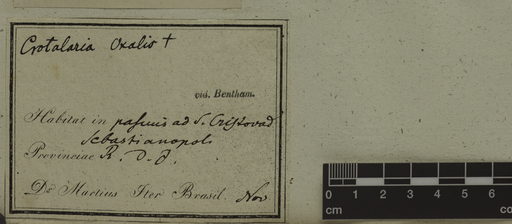 Crotalaria Oxalis +
vid. Bentham.
Habitat in pascuis ad S. Cristovad
Sebastianopol
Provinciae R. d. J.
Dr Martius Iter Brasil. Nov
0 1 2 3 4 5 6
cm copy